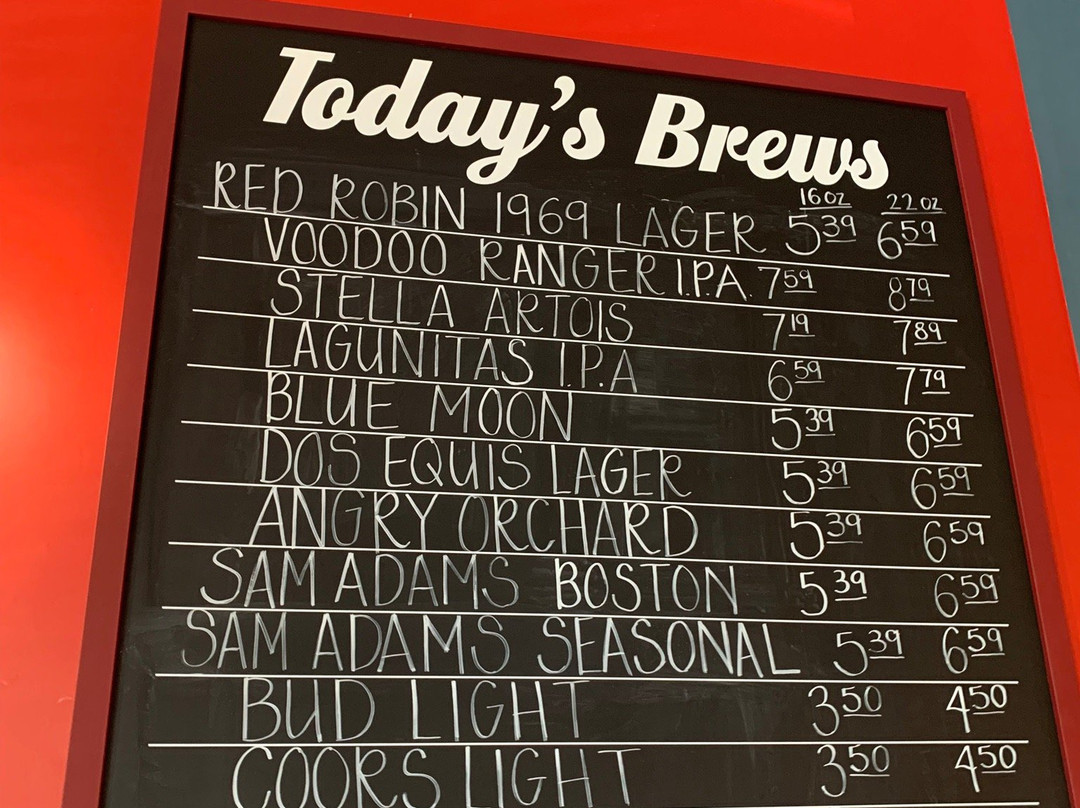 Today's Brews
16oz 22oz
RED ROBIN 1969 LAGER 5 39 6 59
VOODOO RANGER I.P.A. 7 59 8 79
STELLA ARTOIS 7 19 7 89
LAGUNITAS I.P.A 6 59 7 79
BLUE MOON 5 39 6 59
DOS EQUIS LAGER 5 39 6 59
ANGRY ORCHARD 5 39 6 59
SAM ADAMS BOSTON 5 39 6 59
SAM ADAMS SEASONAL 5 39 6 59
BUD LIGHT 3 50 4 50
COORS LIGHT 3 50 4 50